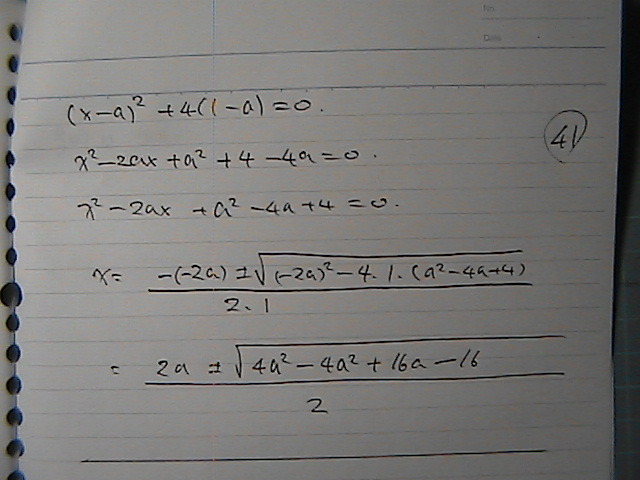 No.
Date
(x-a)² + 4(1-a) = 0.
41
x² - 2ax + a² + 4 - 4a = 0.
x² - 2ax + a² - 4a + 4 = 0.
x = \frac{-(-2a) ± \sqrt{(-2a)² - 4.1.(a² - 4a + 4)}}{2.1}
= \frac{2a ± \sqrt{4a² - 4a² + 16a - 16}}{2}